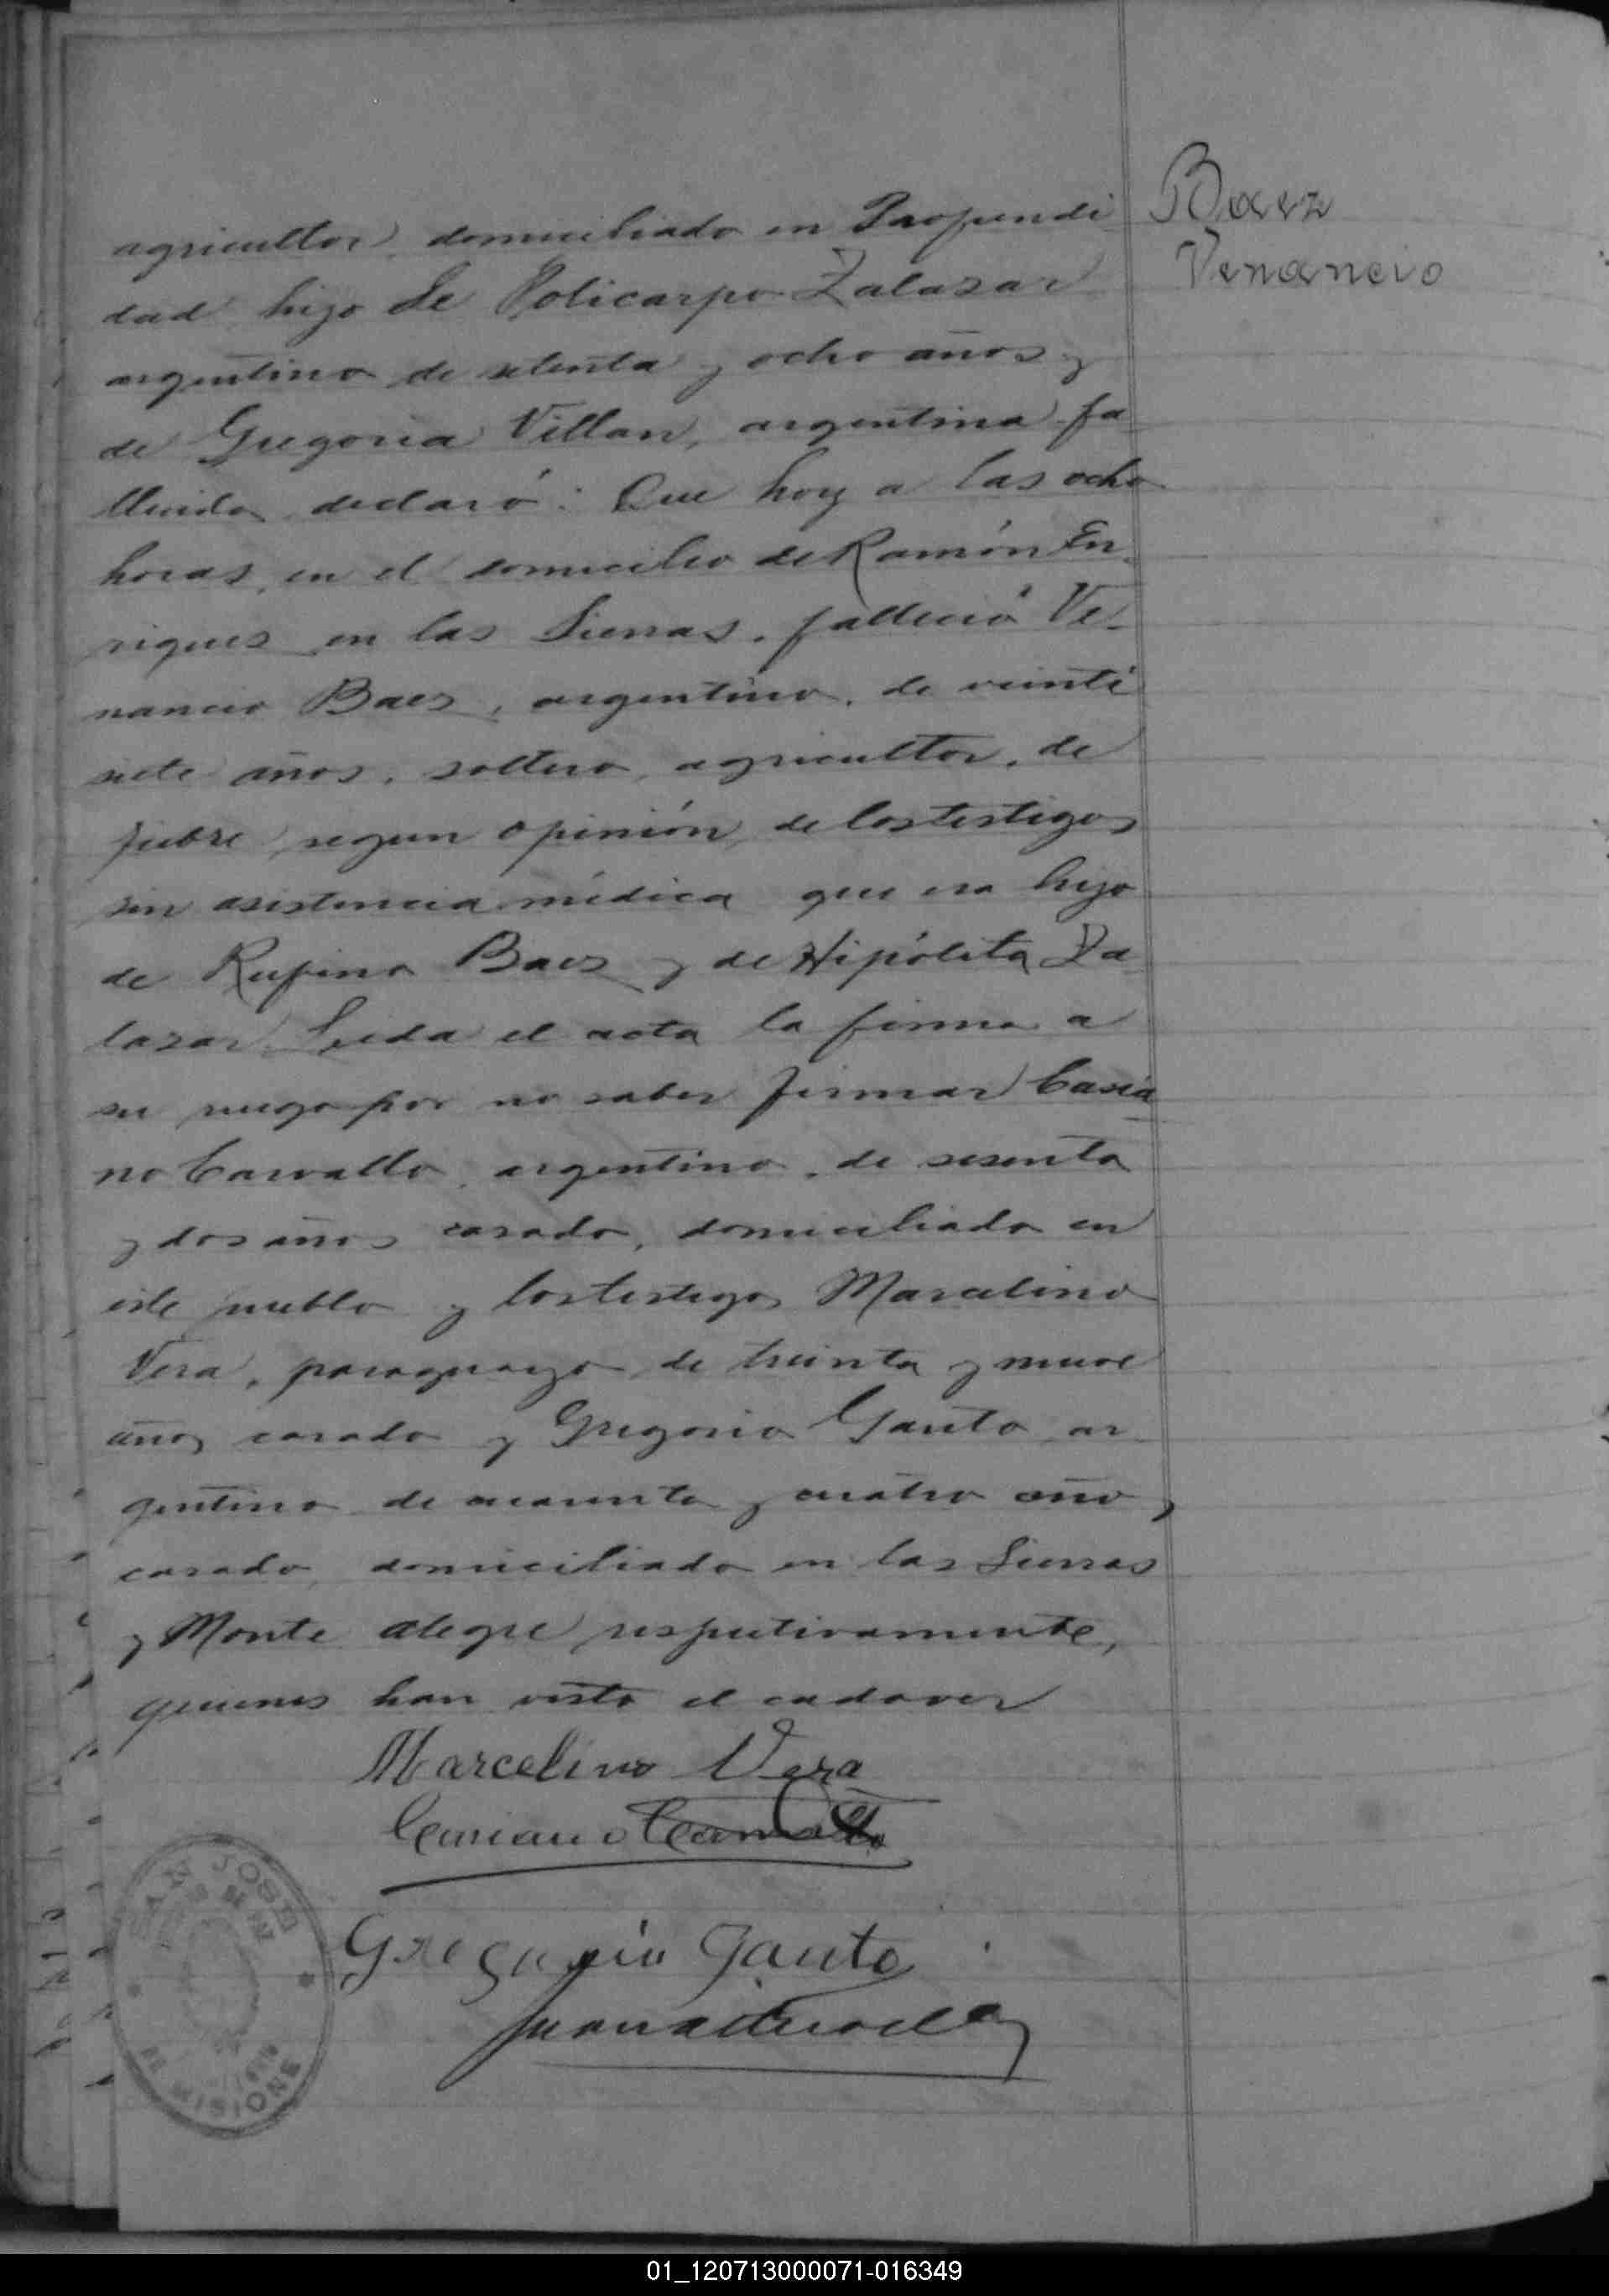 Baez
Venancio
agricultor, domiciliado en Profundi
dad hijo de Policarpo Zalazar
argentino de setenta y ocho años y
de Gregoria Villan, argentina fa
llecida declaró: Que hoy a las ocho
horas, en el domicilio de Ramón En-
riques en las Sierras, falleció Ve-
nancio Baes, argentino, de veinti
siete años, soltero, agricultor, de
fiebre segun opinión de los testigos
sin asistencia médica que era hijo
de Rufino Baes y de Hipólita Za
lazar. Leida el acta la firma a
su ruego por no saber firmar Casia
no Carvallo, argentino, de sesenta
y dos años casado, domiciliado en
este pueblo y los testigos Marcelino
Vera, paraguayo de treinta y nueve
años casado y Gregorio Gauto ar
gentino de cuarenta y cuatro años,
casado, domiciliado en las Sierras
y Monte alegre respectivamente,
quienes han visto el cadaver
Marcelino Vera
Casiano Carvallo
Gregorio Gauto
SAN JOSE
JUZGADO DE PAZ
DE MISIONES
01_120713000071-016349